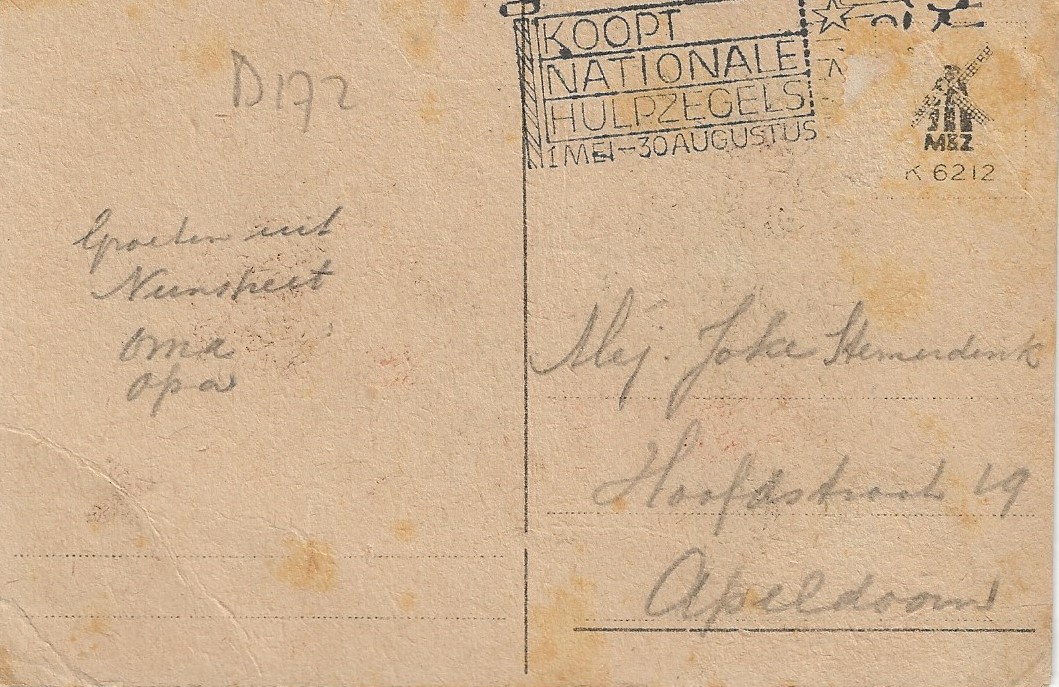 KOOPT
NATIONALE
HULPZEGELS
1 MEI-30 AUGUSTUS
M&Z
K 6212
D172
Groeten uit
Nunspeet
Oma
Opa
Mej. Joke Stemerdink
Hoofdstraat 19
Apeldoorn